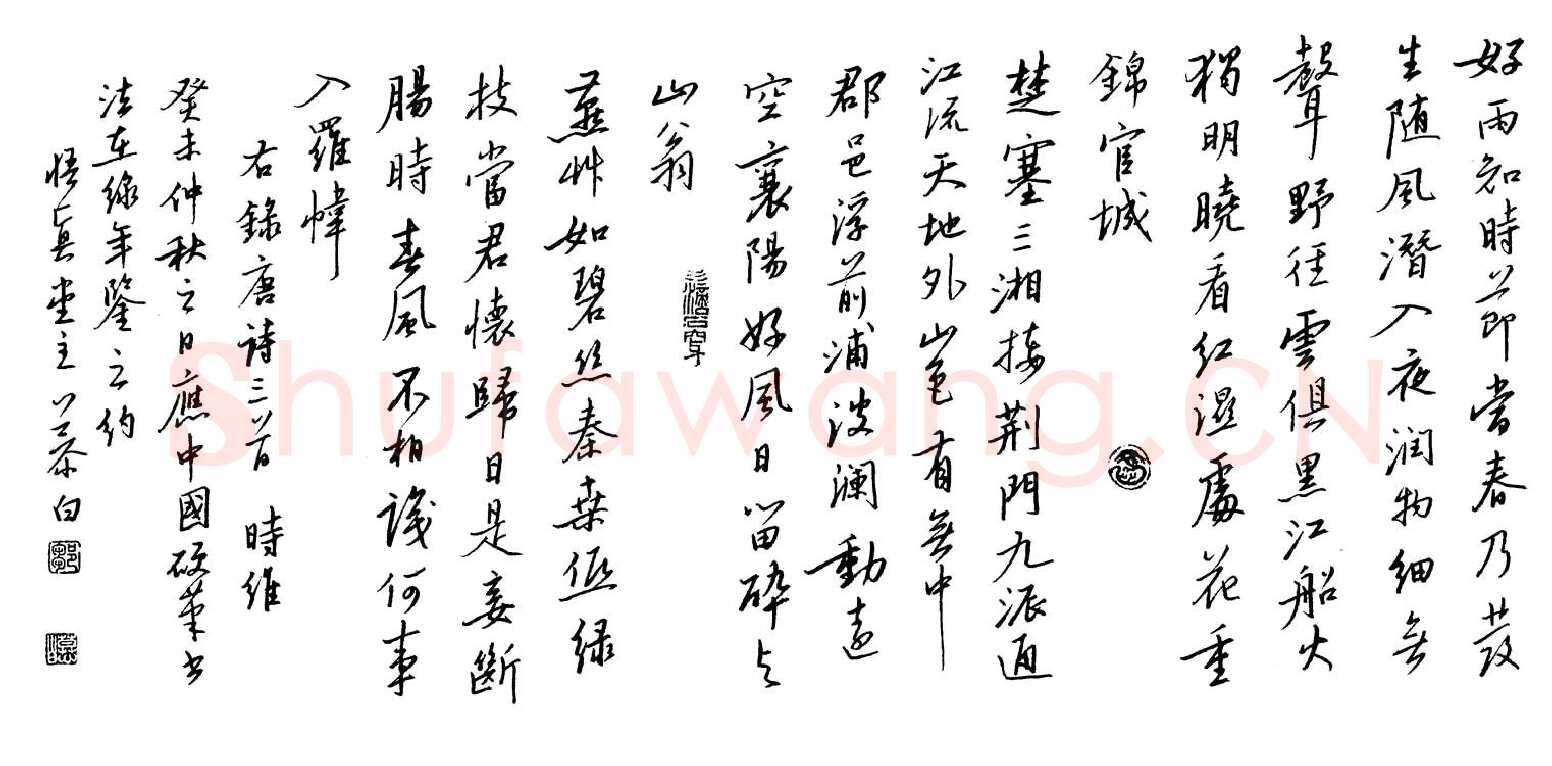 好雨知時節當春乃發
生随風潛入夜润物細無
聲野径雲俱黑江船火
獨明曉看紅濕處花重
錦官城
楚塞三湘接荆門九派通
江流天地外山色有無中
郡邑浮前浦波澜動遠
空襄陽好風日留醉与
山翁
燕艸如碧丝秦桑低緑
枝當君懷歸日是妾斷
腸時春風不相識何事
入羅幃
右錄唐詩三首 時維
癸未仲秋之日應中國硬筆书
法在線年鑒之约
悟真堂主白
郭
Shufawang.CN